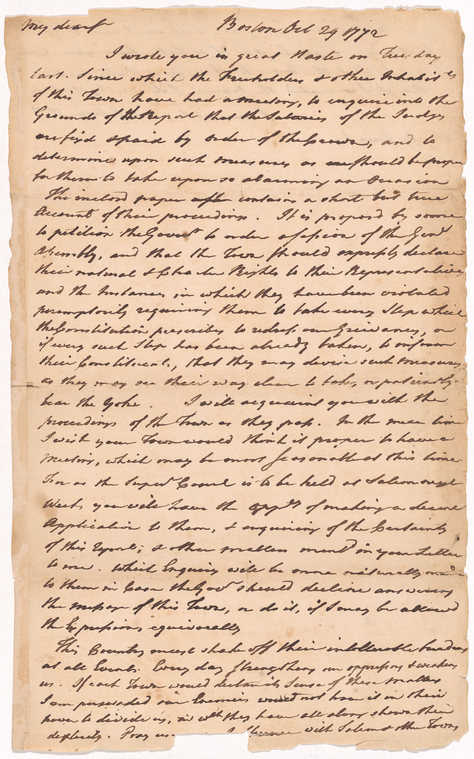 My dear Sir Boston Oct 29 1772
I wrote you in great Haste on Tuesday
last. Since which the Freeholders & other Inhabits
of this Town have had a meeting, to enquire into the
Grounds of the Report that the Salaries of the Judges
are fixd & paid by order of the Crown, and to
determine upon such measures as should be proper
for them to take upon so alarming an Occasion
The inclosd paper contains a short but true
Account of their proceedings. It is proposd by some
to petition the Govr to order a session of the Genl
Assembly, and that the Town should expressly declare
their natural & Charter Rights to their Representatives
and the Instances in which they have been violated
peremptorily requiring them to take every Step which
the Constitution prescribes to redress our Grievances, or
if every such Step has been already taken, to inform
their Constituents, that they may devise such measures,
as they may see their way clear to take, or patiently
bear the Yoke. I will acquaint you with the
proceedings of the Town as they pass. In the mean time
I wish your Town would think it proper to have a
meeting, which may be most seasonable at this time
For as the Supr Court is to be held at Salem next
Week, you will have the oppty of making a decent
Application to them, & enquiring of the Certainty
of this report; & other matters mentd in your Letter
to me. Which Enquiry will be more naturally made
to them in Case the Govr should decline answering
the messge of this Town, or do it, if I may be allowed
the Expression, equivocally
This Country must shake off their intollerable burdens
at all Events. Every day strengthens our oppressors & weakens
us. If each Town would declare its Sense of these Matters
I am perswaded our Enemies would not have it in their
power to divide us, in wch they have all along shown their
dexterity. Pray use with Salem & other Towns